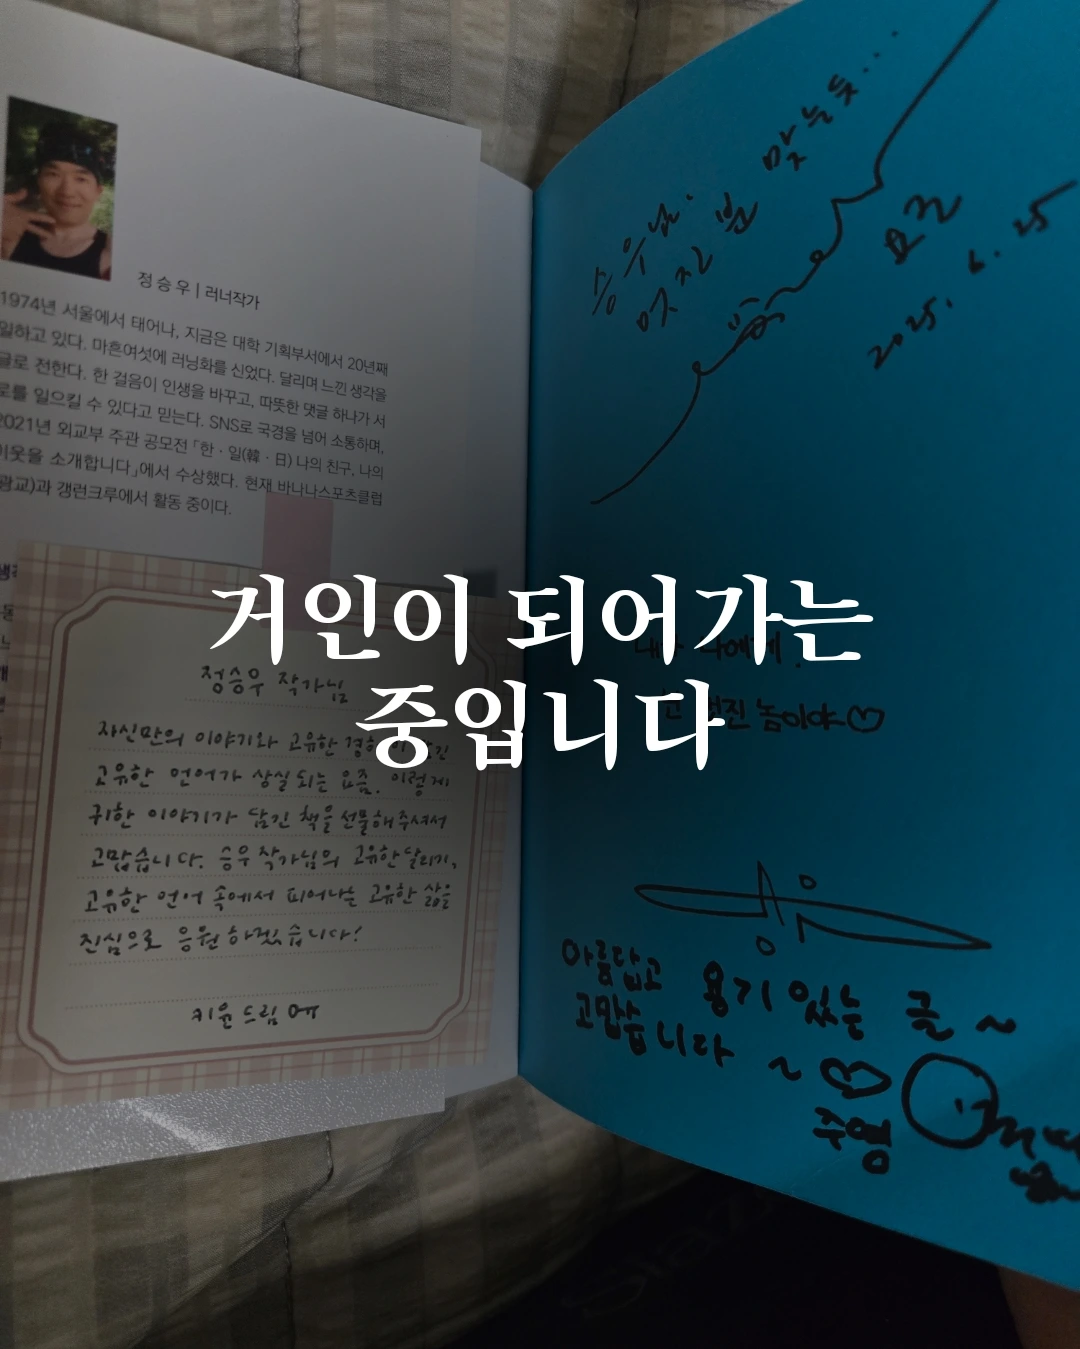 정승우 | 러너작가
1974년 서울에서 태어나, 지금은 대학 기획부서에서 20년째
일하고 있다. 마흔여섯에 러닝화를 신었다. 달리며 느낀 생각을
글로 전한다. 한 걸음이 인생을 바꾸고, 따뜻한 댓글 하나가 서
로를 일으킬 수 있다고 믿는다. SNS로 국경을 넘어 소통하며,
2021년 외교부 주관 공모전 「한·일(韓·日) 나의 친구, 나의
이웃을 소개합니다」에서 수상했다. 현재 바나나스포츠클럽
(광교)과 갱런크루에서 활동 중이다.
거인이 되어가는
중입니다
정승우 작가님
자신만의 이야기와 고유한
고유한 언어가 상실되는 요즘, 이렇게
귀한 이야기가 담긴 책을 선물해주셔서
고맙습니다. 승우 작가님의 고유한 달리기,
고유한 언어 속에서 피어나는 고유한 삶을
진심으로 응원하겠습니다!
키윤 드림
승우님.
멋진 분 맞는듯...
2025. 6. 25
놈이야♡
아름답고 용기있는 글~
고맙습니다~♡
주영